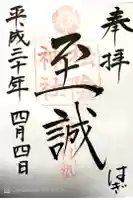 奉拝
至誠
平成三十年 四月四日
はぎ